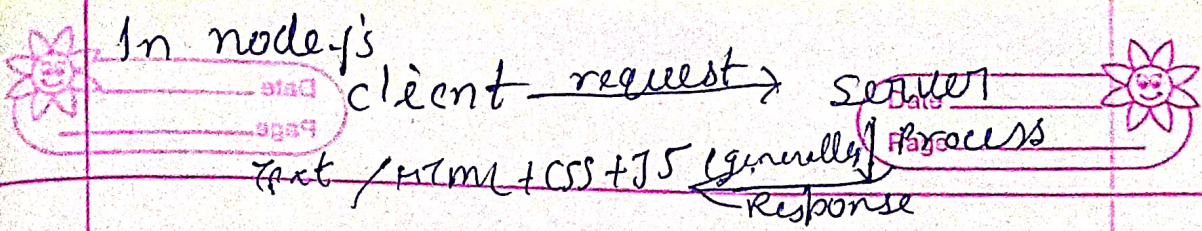 In node.js
client request → server
Date
Date
Page
Page
Process
Text / HTML + CSS + JS (generally)
Response